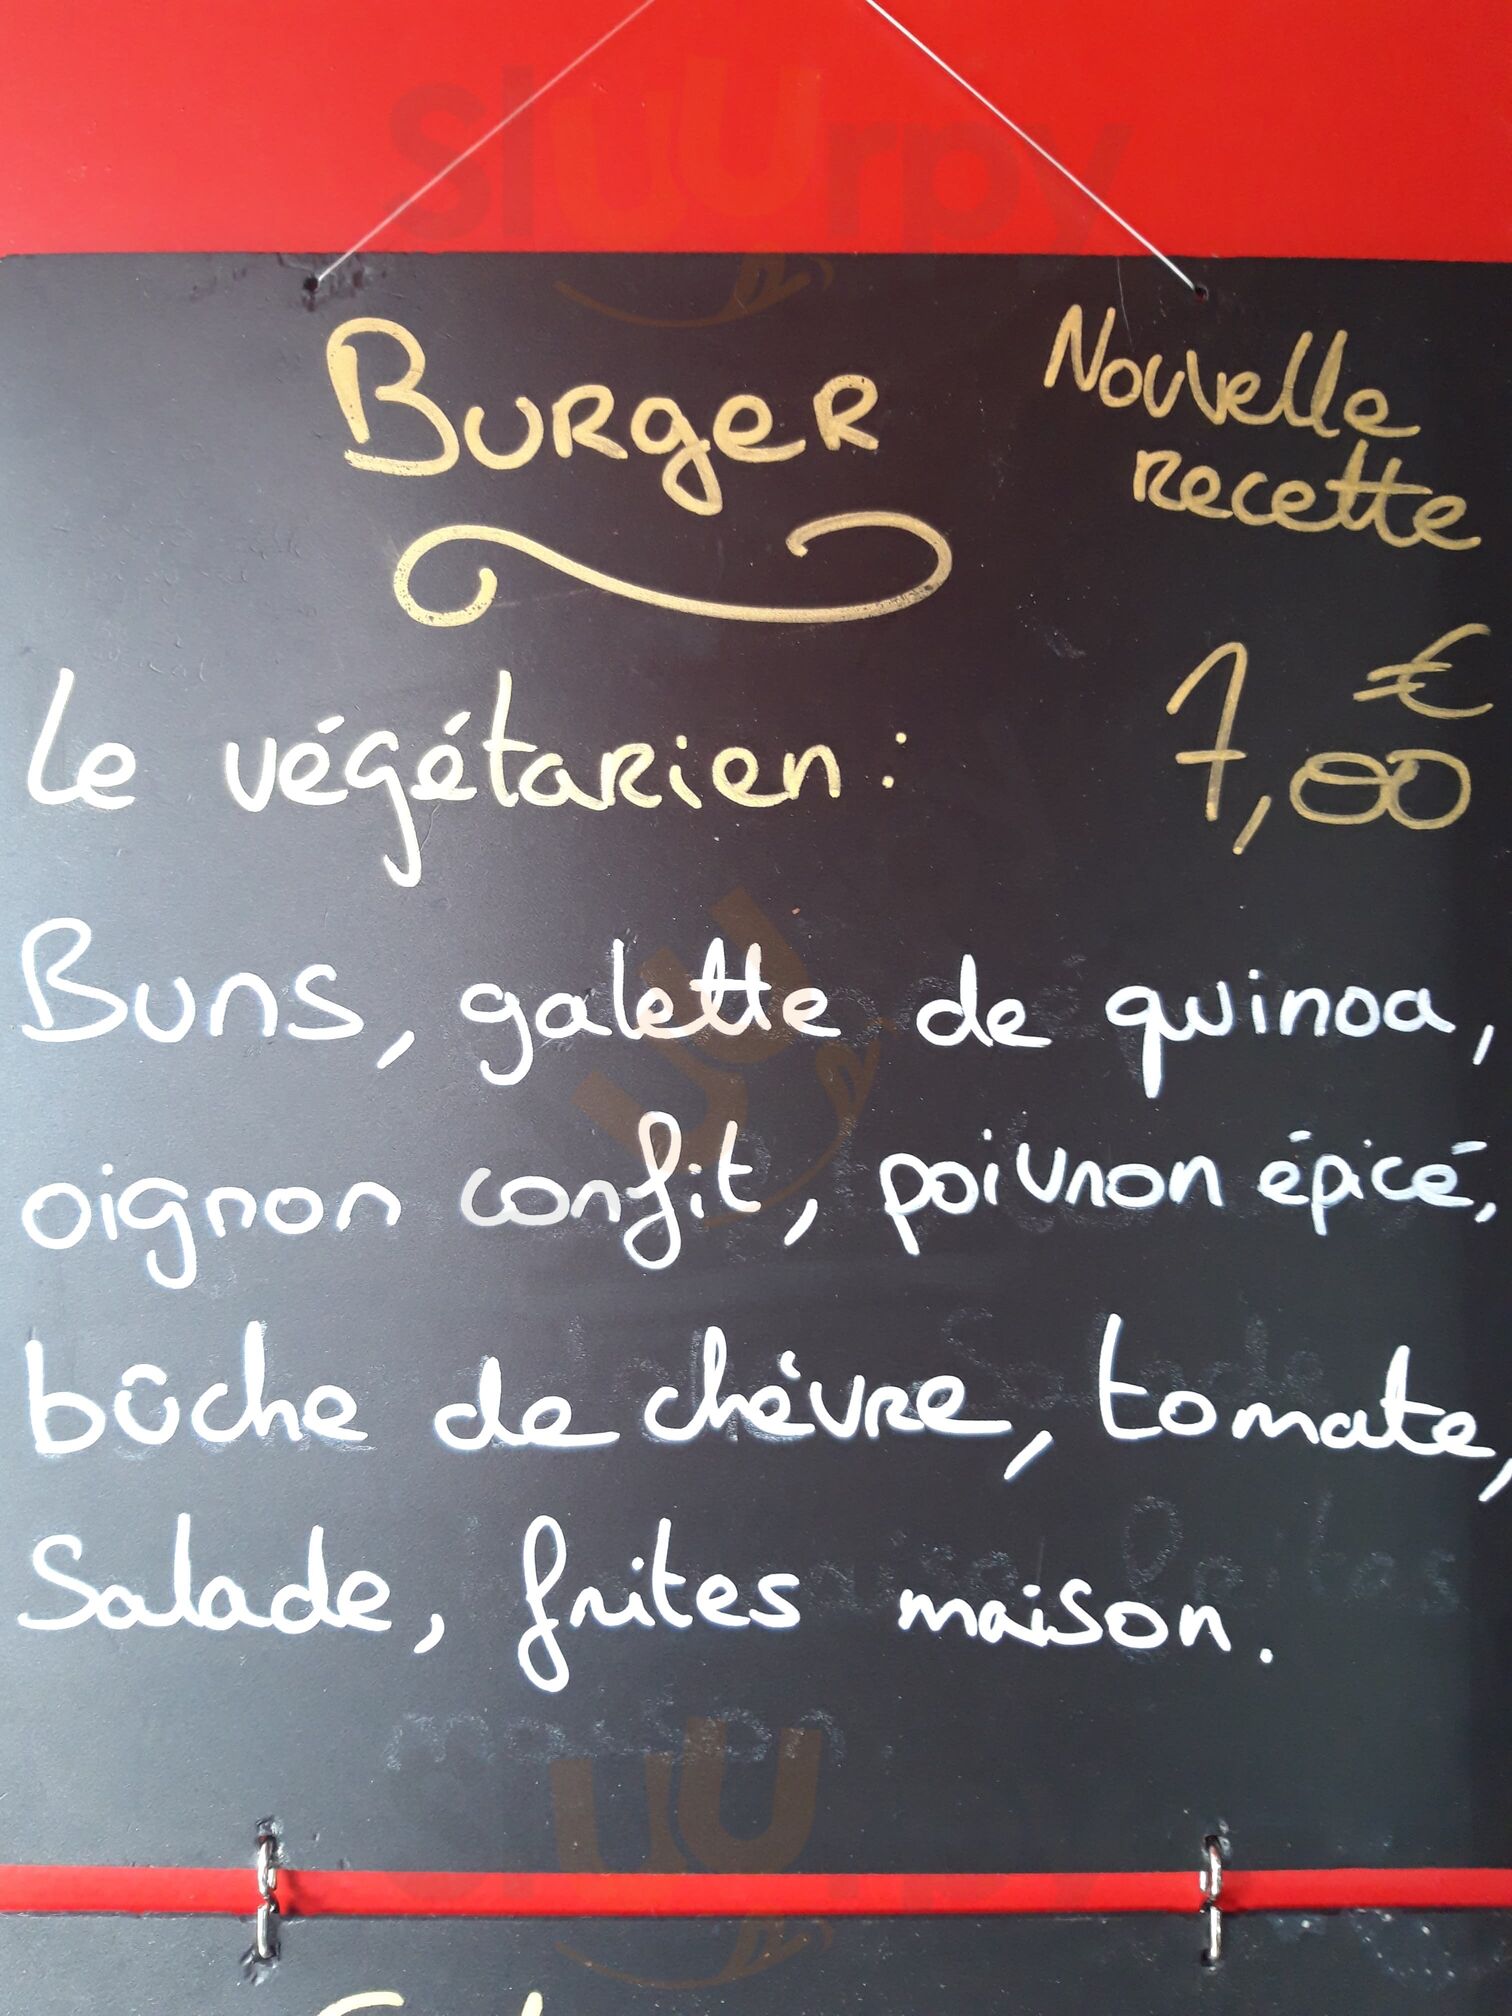 sluurpy
Burger
Nouvelle
recette
Le végétarien : 7,00 €
Buns, galette de quinoa,
oignon confit, poivron épicé,
bûche de chèvre, tomate,
Salade, frites maison.